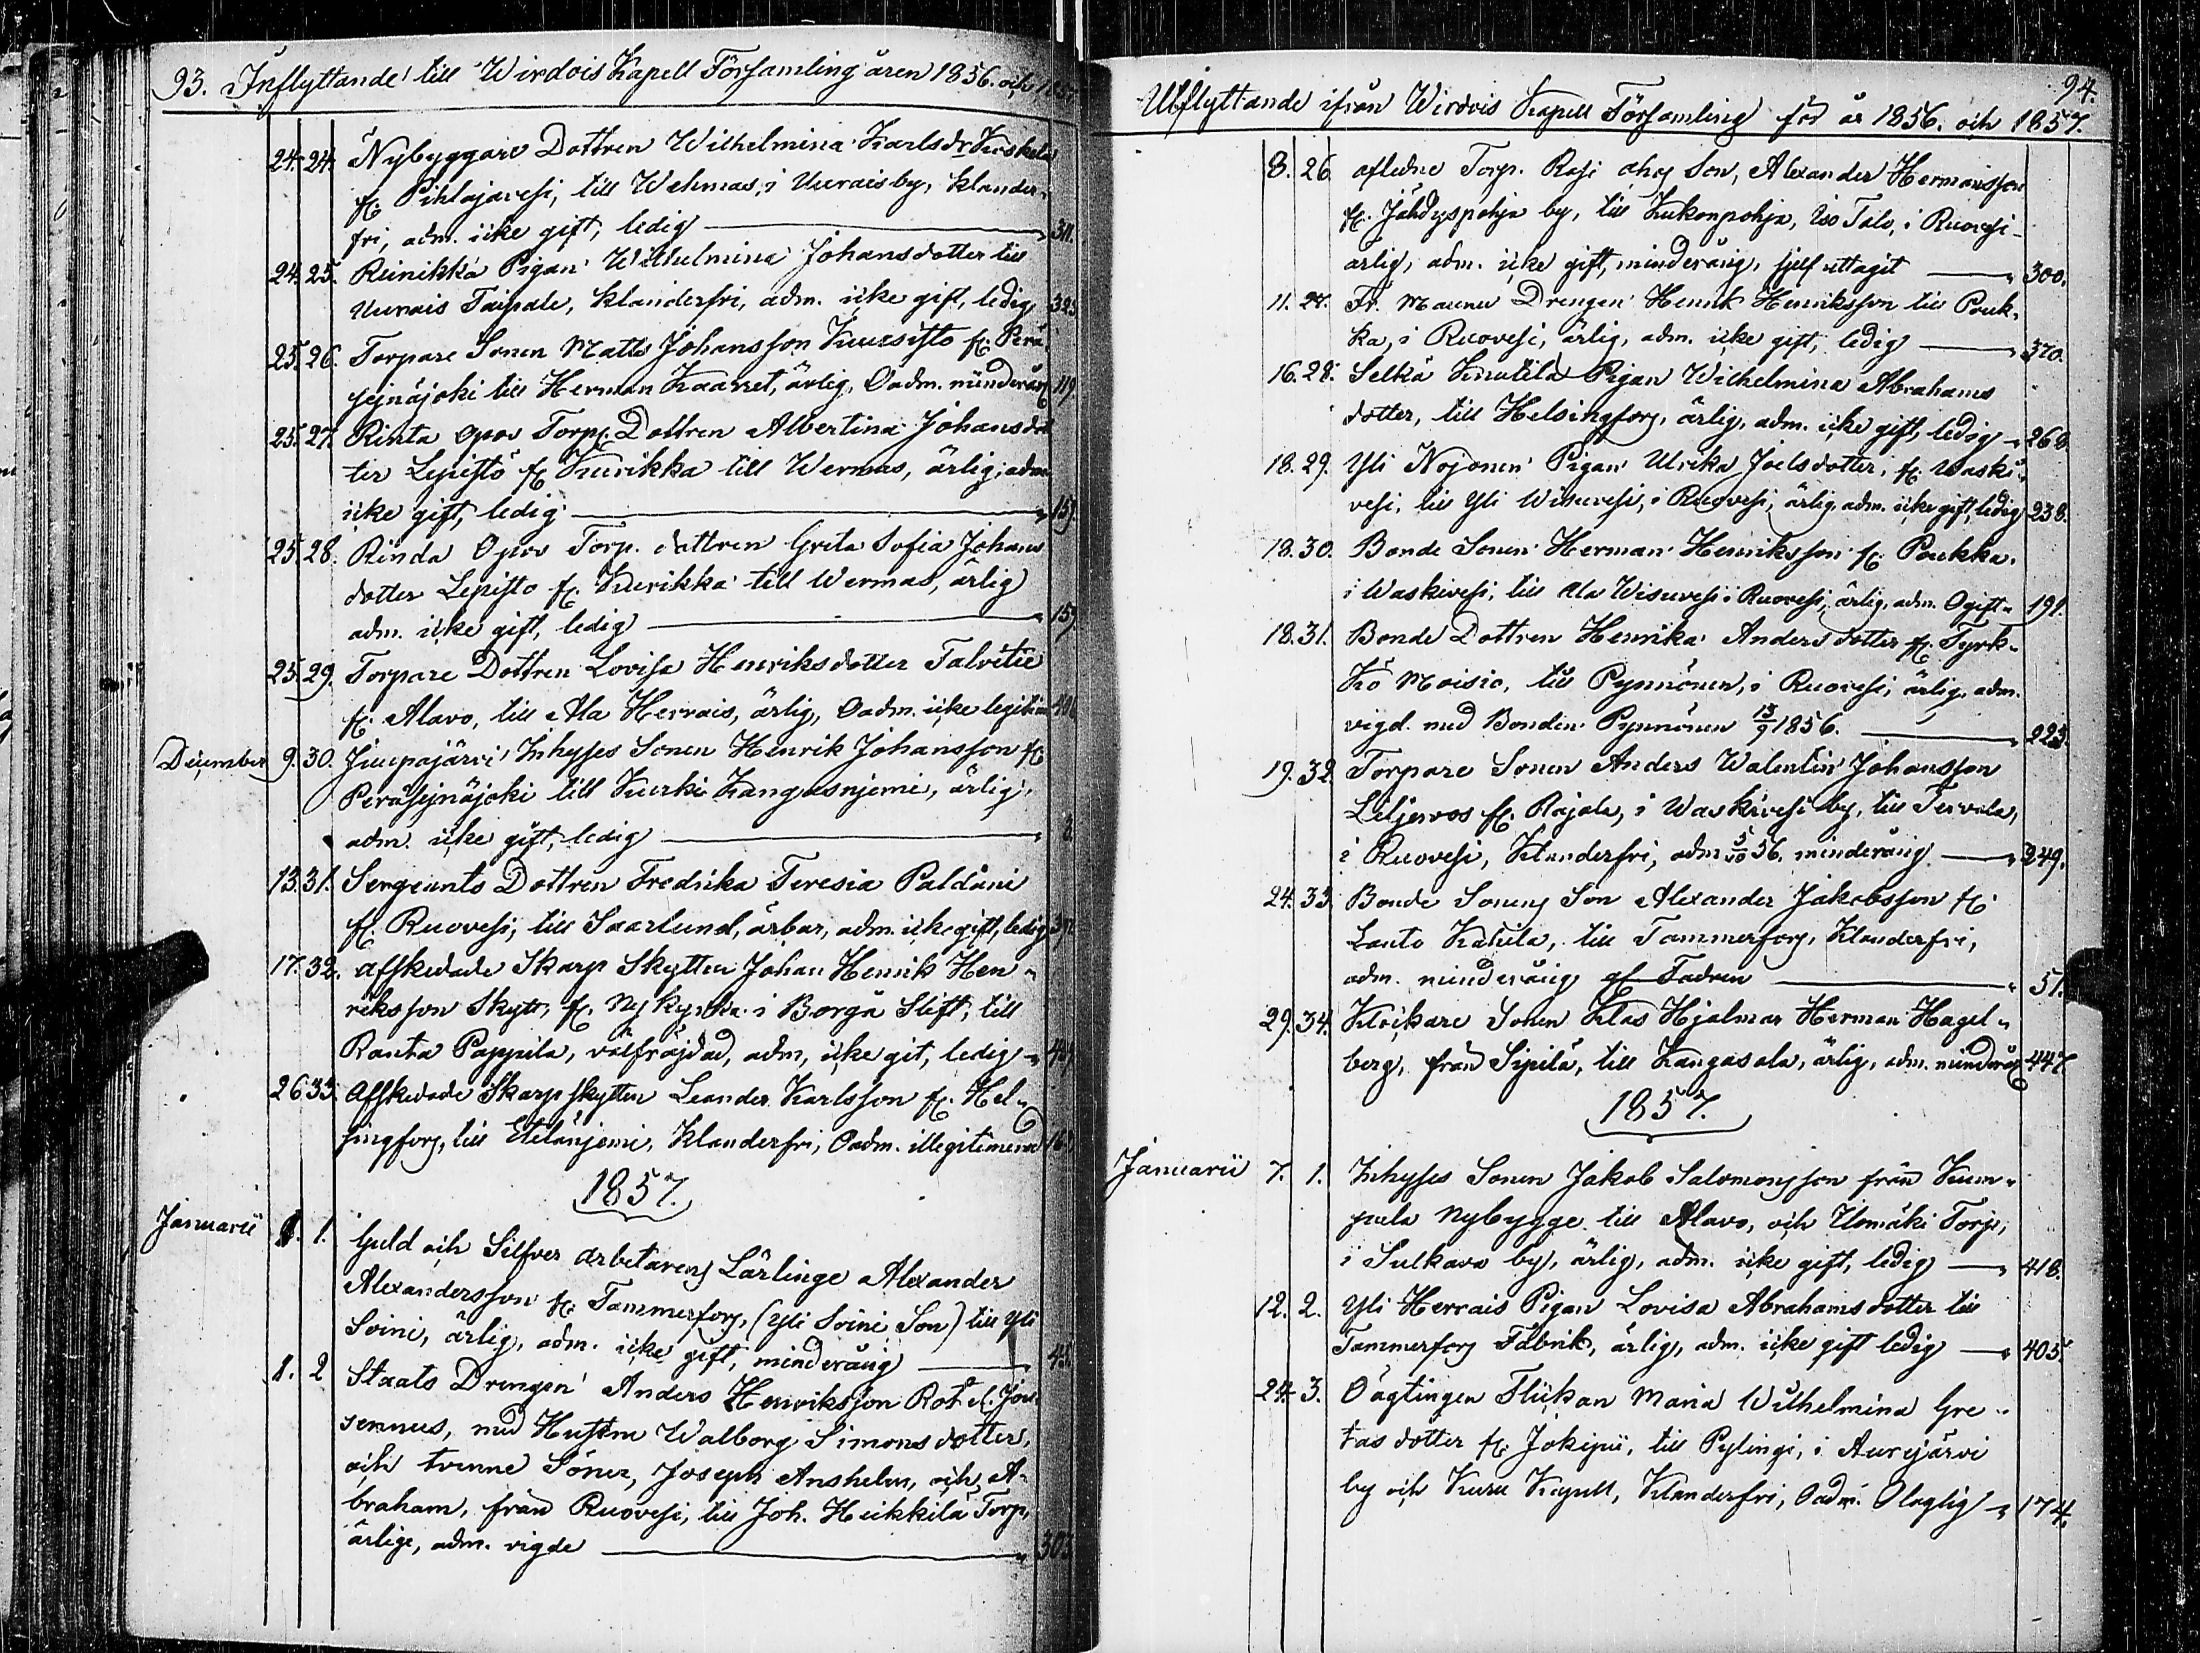 93. Inflyttande till Wirdois Kapell Församling åren 1856. och
24. 24. Nybyggare Dottren Wilhelmina Karlsdr Koskela
fr. Pihlajavesi, till Wehmas, i Uurais by, klander-
fri, adm. icke gift, ledig — 311.
24. 25. Reinikka Pigan Wilhelmina Johansdotter till
Uurais Taipale, klanderfri, adm. icke gift, ledig 325
25. 26. Torpare Sonen Matts Johansson Kuusisto fr. Perä
sejnäjoki till Herman Kaarret, ärlig, Oadm. minderårg 119
25. 27. Rinta Opas Torp. Dottren Albertina Johansdot
ter Lepistö fr. Kurikka till Wermas, ärlig, adm.
icke gift, ledig — 159.
25. 28. Rinda Opas Torp. dottren Greta Sofia Johans
dotter Lepisto fr. Kurikka till Wermas, ärlig
adm. icke gift, ledig — 159
25. 29. Torpare Dottren Lovisa Henriksdotter Talvitie
fr. Alavo, till Ala Herrais, ärlig, Oadm. icke legitim
December 9. 30. Juupajärvi Inhyses Sonen Henrik Johansson fr
Peräsejnäjoki till Kurki Kangasnjemi, ärlig,
adm. icke gift, ledig —
13. 31. Sergeants Dottren Fredrika Teresia Paldani
fr. Ruovesi, till Saarlund, ärbar, adm. icke gift, ledig
17. 32. Afskedade Skarp Skytten Johan Henrik Hen-
riksson Skytt, fr. Nykyrka i Borgå Stift, till
Ranta Pappila, välfräjdad, adm, icke git, ledig
26 33. Afskedade Skarpskytten Leander Karlsson fr. Hel-
singfors, till Etelänjemi, Klanderfri, Oadm. illegitimerad
1857.
Januarii 1. 1. Guld och Silfver Arbetarens Lärlinge Alexander
Alexandersson fr. Tammerfors, (Yli Soini Son) till Yli
Soini, ärlig, adm. icke gift, minderårig —
1. 2 Staats Drengen Anders Henriksson Rot
med Hustru Walborg Simonsdotter,
och tvenne Söner, Joseph Anshelm, och A-
braham, från Ruovesi, till Joh. Heikkilä Torp,
ärlige, adm. vigde — 303
94.
Utflyttande ifrån Wirdois Kapell Församling för år 1856. och 1857.
8. 26 afledne Torp. Rasi ahos Son, Alexander Hermansson
fr. Jähdyspohja by, till Kukonpohja, Iso Talo, i Ruovesi
ärlig, adm. icke gift, minderårig, sjelf uttagit — 300.
11. 27. Fr. Maunu Drengen Henrik Henriksson till Pouk-
ka, i Ruovesi, ärlig, adm. icke gift, ledig — 370.
16. 28. Selkä Knutila Pigan Wilhelmina Abrahams
dotter, till Helsingfors, ärlig, adm. icke gift, ledig 268
18. 29. Yli Nojonen Pigan Ulrika Joelsdotter, fr. Waski-
vesi, till Yli Wisuvesi, i Ruovesi, ärlig, adm. icke gift, ledig 238.
18. 30. Bonde Sonen Herman Henriksson fr. Poukka,
i Waskivesi, till Ala Wisuvesi i Ruovesi, ärlig, adm. Ogift 191.
18. 31. Bonde Dottren Henrika Andersdotter fr. Tyrk-
kö Moisio, till Pynnönen, i Ruovesi, ärlig, adm.
vigd med Bonden Pynnönen 13/9 1856. — 223
19. 32 Torpare Sonen Anders Walentin Johansson
Liljeroos fr. Rajala, i Waskivesi by, till Tervala,
i Ruovesi, Klanderfri, adm 5/10 56. minderårig — 249.
24. 33. Bonde Sonens Son Alexander Jakobsson fr.
Lauto Kakila, till Tammerfors, Klanderfri,
adm. minderårig gf Fadren — 51.
29. 34. Klockare Sonen Klas Hjalmar Herman Hagel-
berg, från Sipilä, till Kangasala, ärlig, adm. minderårg 447
1857.
Januarii 7. 1. Inhyses Sonen Jakob Salomonsson från Kum-
pula Nybygge till Alavo, och Ilomäki Torp,
i Sulkava by, ärlig, adm. icke gift, ledig — 418.
12. 2. Yli Herrais Pigan Lovisa Abrahamsdotter till
Tammerfors Fabrik, ärlig, adm. icke gift ledig — 405.
24. 3. Oägtingen Flickan Maria Wilhelmina Gre-
tas dotter fr. Jokipii, till Pylingi, i Aurejärvi
by och Kuru Kapell, Klanderfri, Oadm. Olaglig — 174.